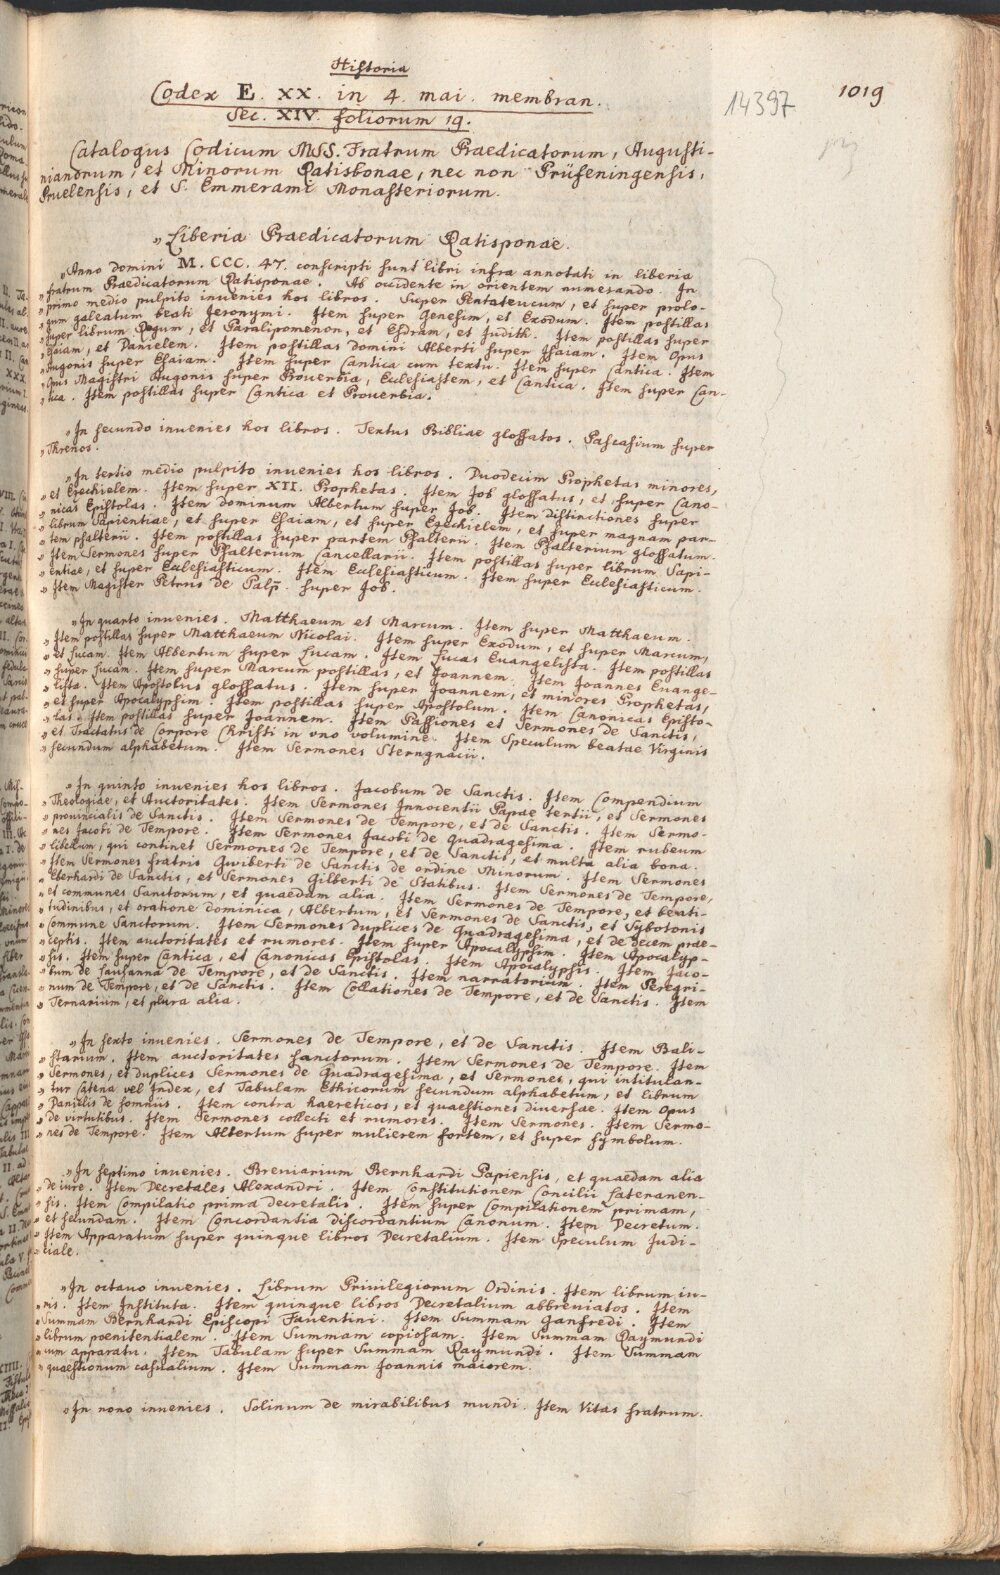 Historia
1019
Codex E. XX. in 4. mai. membran.
14397
Sec. XIV. foliorum 19.
Catalogus Codicum MSS. Fratrum Praedicatorum, Augusti-
nianorum, et Minorum Ratisbonae, nec non Prüfeningensis,
Pruelensis, et S. Emmerami Monasteriorum.
„Liberia Praedicatorum Ratisponae.
„Anno domini M. CCC. 47. conscripti sunt libri infra annotati in liberia
„fratrum Praedicatorum Ratisponae. Ab occidente in orientem numerando. In
„primo medio pulpito invenies hos libros. Super Pentateucum, et super prolo-
„gum galeatum beati Jeronymi. Item super Genesim, et Exodum. Item postillas
„super librum Regum, et Paralipomenon, et Esdram, et Judith. Item postillas super
„Esaiam, et Danielem. Item postillas domini Alberti super Esaiam. Item Opus
„Hugonis super Esaiam. Item super Cantica cum textu. Item super Cantica. Item
„Opus Magistri Hugonis super Prouerbia, Ecclesiastem, et Cantica. Item super Can-
„tica. Item postillas super Cantica et Prouerbia.
„In secundo inuenies hos libros. Textus Bibliae glossatos. Pascasium super
„Threnos.
„In tertio medio pulpito inuenies hos libros. Duodecim Prophetas minores,
„et Ezechielem. Item super XII. Prophetas. Item Job glossatus, et super Cano-
„nicas Epistolas. Item dominum Albertum super Job. Item distinctiones super
„librum Sapientiae, et super Esaiam, et super Ezechielem, et super magnam par-
„tem psalterii. Item postillas super partem Psalterii. Item Psalterium glossatum.
„Item Sermones super Psalterium Cancellarii. Item postillas super librum Sapi-
„entiae, et super Ecclesiasticum. Item Ecclesiasticum. Item super Ecclesiasticum.
„Item Magister Petrus de Palp̄. super Job.
„In quarto inuenies. Matthaeum et Marcum. Item super Matthaeum.
„Item postillas super Matthaeum Nicolai. Item super Exodum, et super Marcum,
„et Lucam. Item Albertum super Lucam. Item Lucas Euangelista. Item postillas
„super Lucam. Item super Marcum postillas, et Joannem. Item Joannes Euange-
„lista. Item Apostolus glossatus. Item super Joannem, et minores Prophetas,
„et super Apocalypsim. Item postillas super Apostolum. Item Canonicas Episto-
„las. Item postillas super Joannem. Item Passiones et Sermones de Sanctis,
„et Tractatus de Corpore Christi in vno volumine. Item Speculum beatae Virginis
„secundum alphabetum. Item Sermones Sterngnacii.
„In quinto inuenies hos libros. Jacobum de Sanctis. Item Compendium
„Theologiae, et Auctoritates. Item Sermones Innocentii Papae tertii, et Sermones
„prouincialis de Sanctis. Item Sermones de Tempore, et de Sanctis. Item Sermo-
„nes Jacobi de Tempore. Item Sermones Jacobi de Quadragesima. Item rubeum
„libellum, qui continet Sermones de Tempore, et de Sanctis, et multa alia bona.
„Item Sermones fratris Gwiberti de Sanctis de ordine Minorum. Item Sermones
„Eberhardi de Sanctis, et Sermones Gilberti de Statibus. Item Sermones de Tempore,
„et communes Sanctorum, et quaedam alia. Item Sermones de Tempore, et beati-
„tudinibus, et oratione dominica, Albertum, et Sermones de Sanctis, et Sybotonis
„Commune Sanctorum. Item Sermones duplices de Quadragesima, et de decem prae-
„ceptis. Item auctoritates et rumores. Item super Apocalypsim. Item Apocalyp-
„sis. Item super Cantica, et Canonicas Epistolas. Item Apocalypsis. Item Jaco-
„bum de Lausanna de Tempore, et de Sanctis. Item narratorium. Item Peregri-
„num de Tempore, et de Sanctis. Item Collationes de Tempore, et de Sanctis. Item
„Ternarium, et plura alia.
„In sexto inuenies. Sermones de Tempore, et de Sanctis. Item Bali-
„starium. Item auctoritates sanctorum. Item Sermones de Tempore. Item
„Sermones, et duplices Sermones de Quadragesima, et Sermones, qui intitulan-
„tur Catena vel Index, et Tabulam Ethicorum secundum alphabetum, et librum
„Danielis de somniis. Item contra haereticos, et quaestiones diuersae. Item Opus
„de virtutibus. Item Sermones collecti et rumores. Item Sermones. Item Sermo-
„nes de Tempore. Item Albertum super mulierem fortem, et super symbolum.
„In septimo inuenies. Breuiarium Bernhardi Papiensis, et quaedam alia
„de iure. Item Decretales Alexandri. Item Constitutionem Concilii Lateranen-
„sis. Item Compilatio prima decretalis. Item super Compilationem primam,
„et secundam. Item Concordantia discordantium Canonum. Item Decretum.
„Item Apparatum super quinque libros Decretalium. Item Speculum Judi-
„ciale.
„In octauo inuenies. Librum Priuilegiorum Ordinis. Item librum iu-
„ris. Item Instituta. Item quinque libros Decretalium abbreuiatos. Item
„Summam Bernhardi Episcopi Fauentini. Item Summam Ganfredi. Item
„librum poenitentialem. Item Summam copiosam. Item Summam Raymundi
„cum apparatu. Item Tabulam super Summam Raymundi. Item Summam
„quaestionum casualium. Item Summam Joannis maiorem.
„In nono inuenies. Solinum de mirabilibus mundi. Item Vitas fratrum.